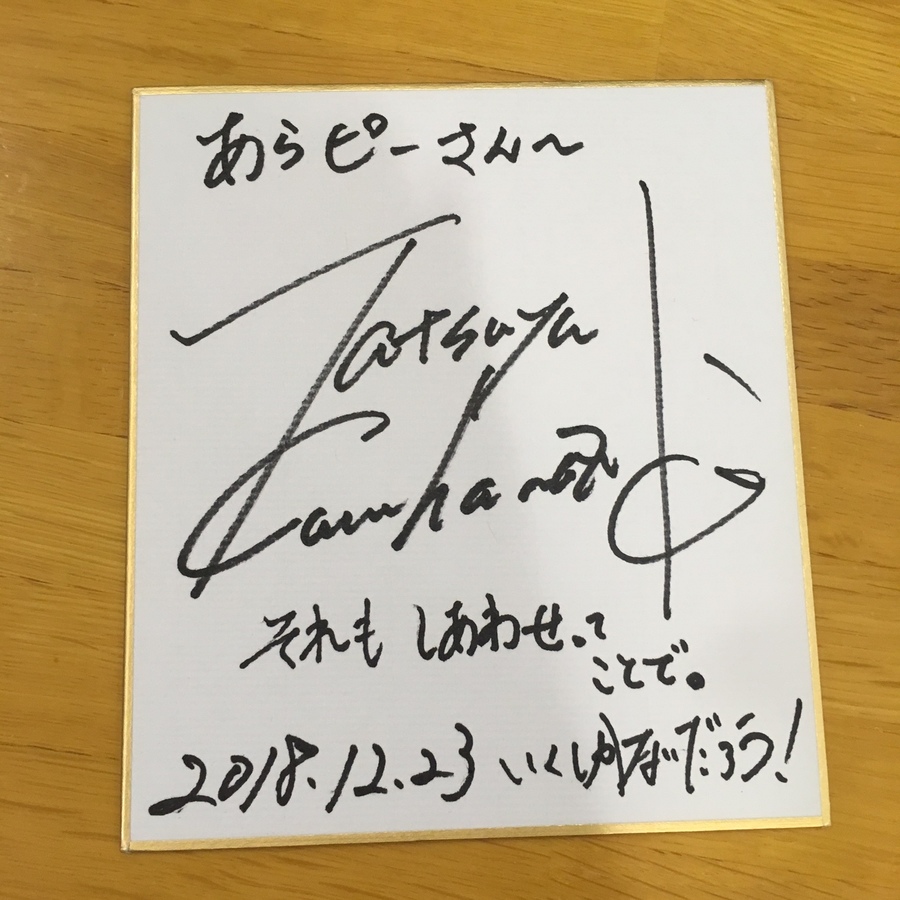 あらピーさん〜
Tatsuya
それもしあわせって
ことで。
2018.12.23 いくしかないだろう!